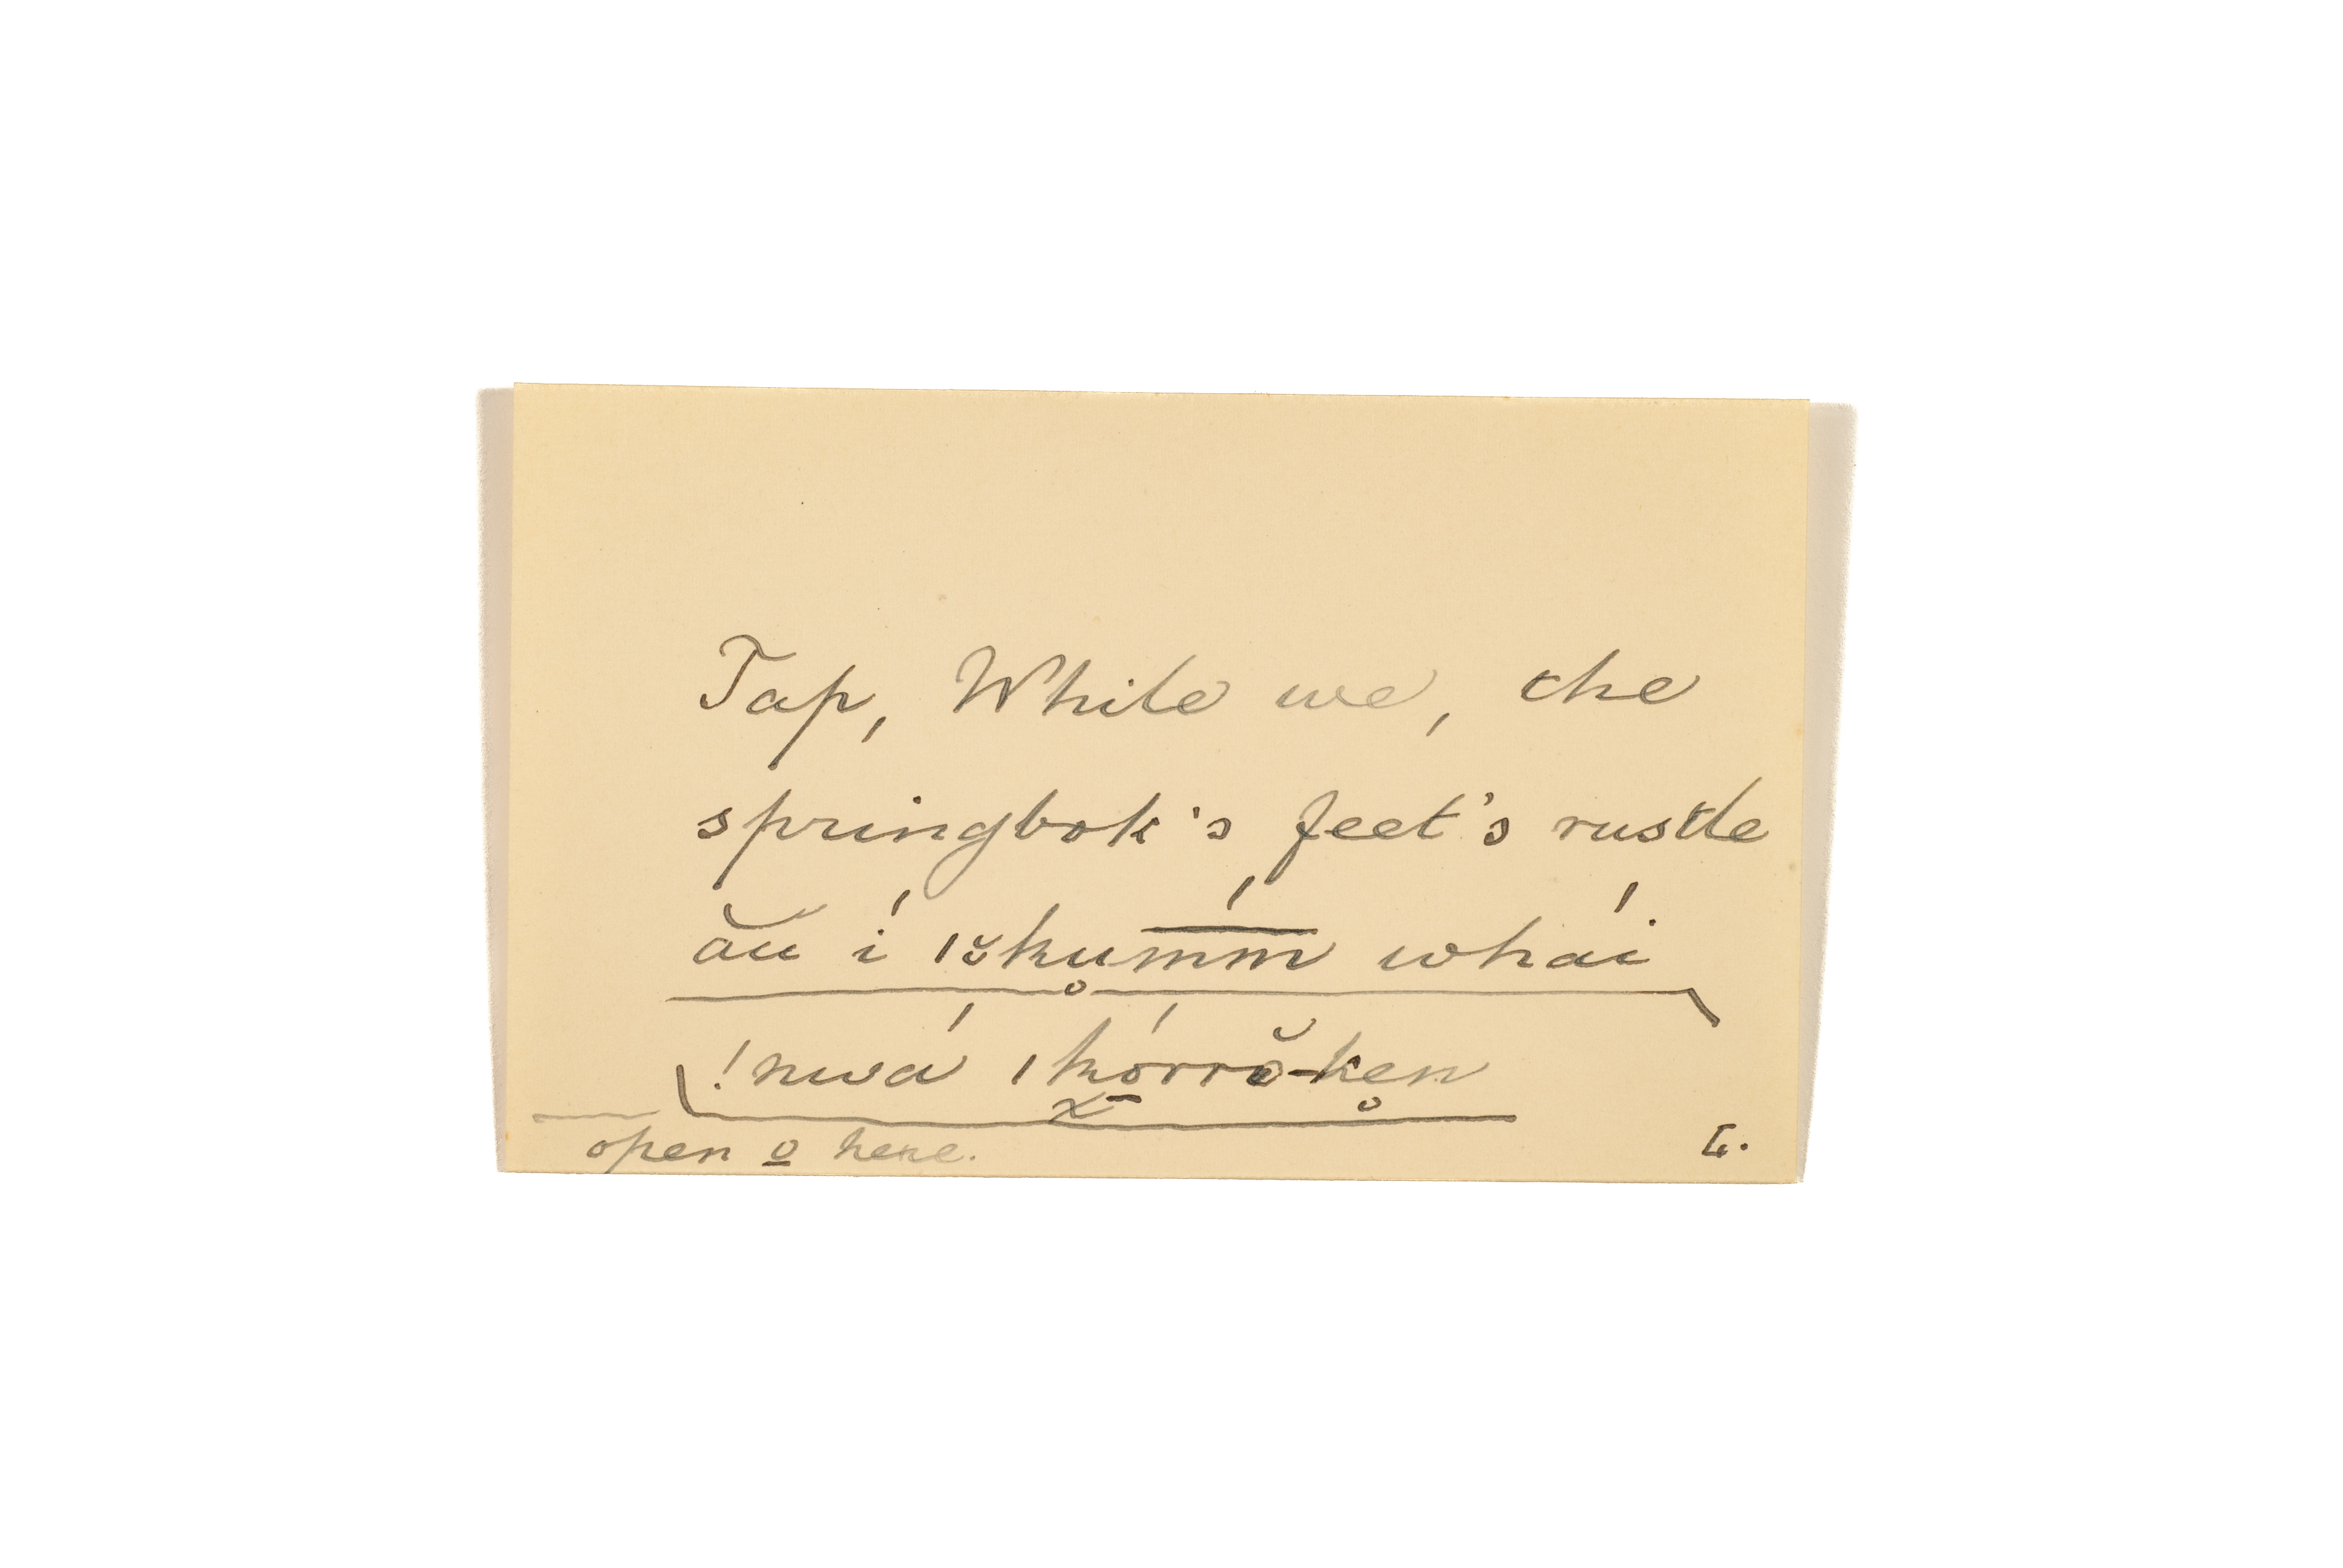 Tap, While we, the
springbok's feet's rustle
ău í |ŏku̥m̄́m̄ whaí
!nwá |kó̱rrŏ-ke̥n
open o̲ here. L.